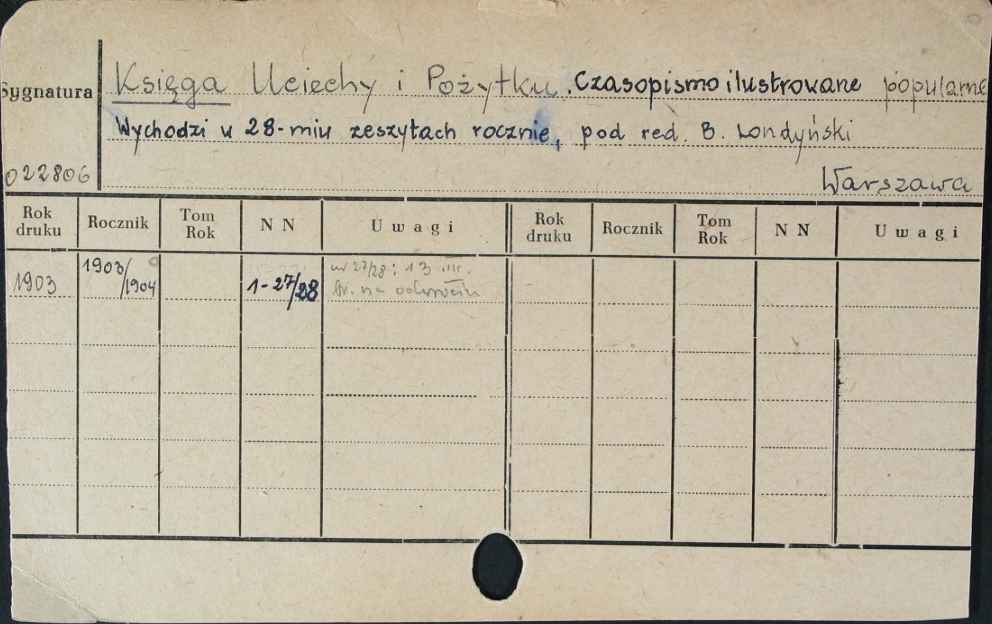 Sygnatura
Księga Uciechy i Pożytku. Czasopismo ilustrowane popularne
Wychodzi w 28-miu zeszytach rocznie, pod red. B. Londyński
022806 Warszawa
Rok druku Rocznik Tom Rok N N Uwagi Rok druku Rocznik Tom Rok N N Uwagi
1903 1903/1904 1-27/28 nr 27/28: 13